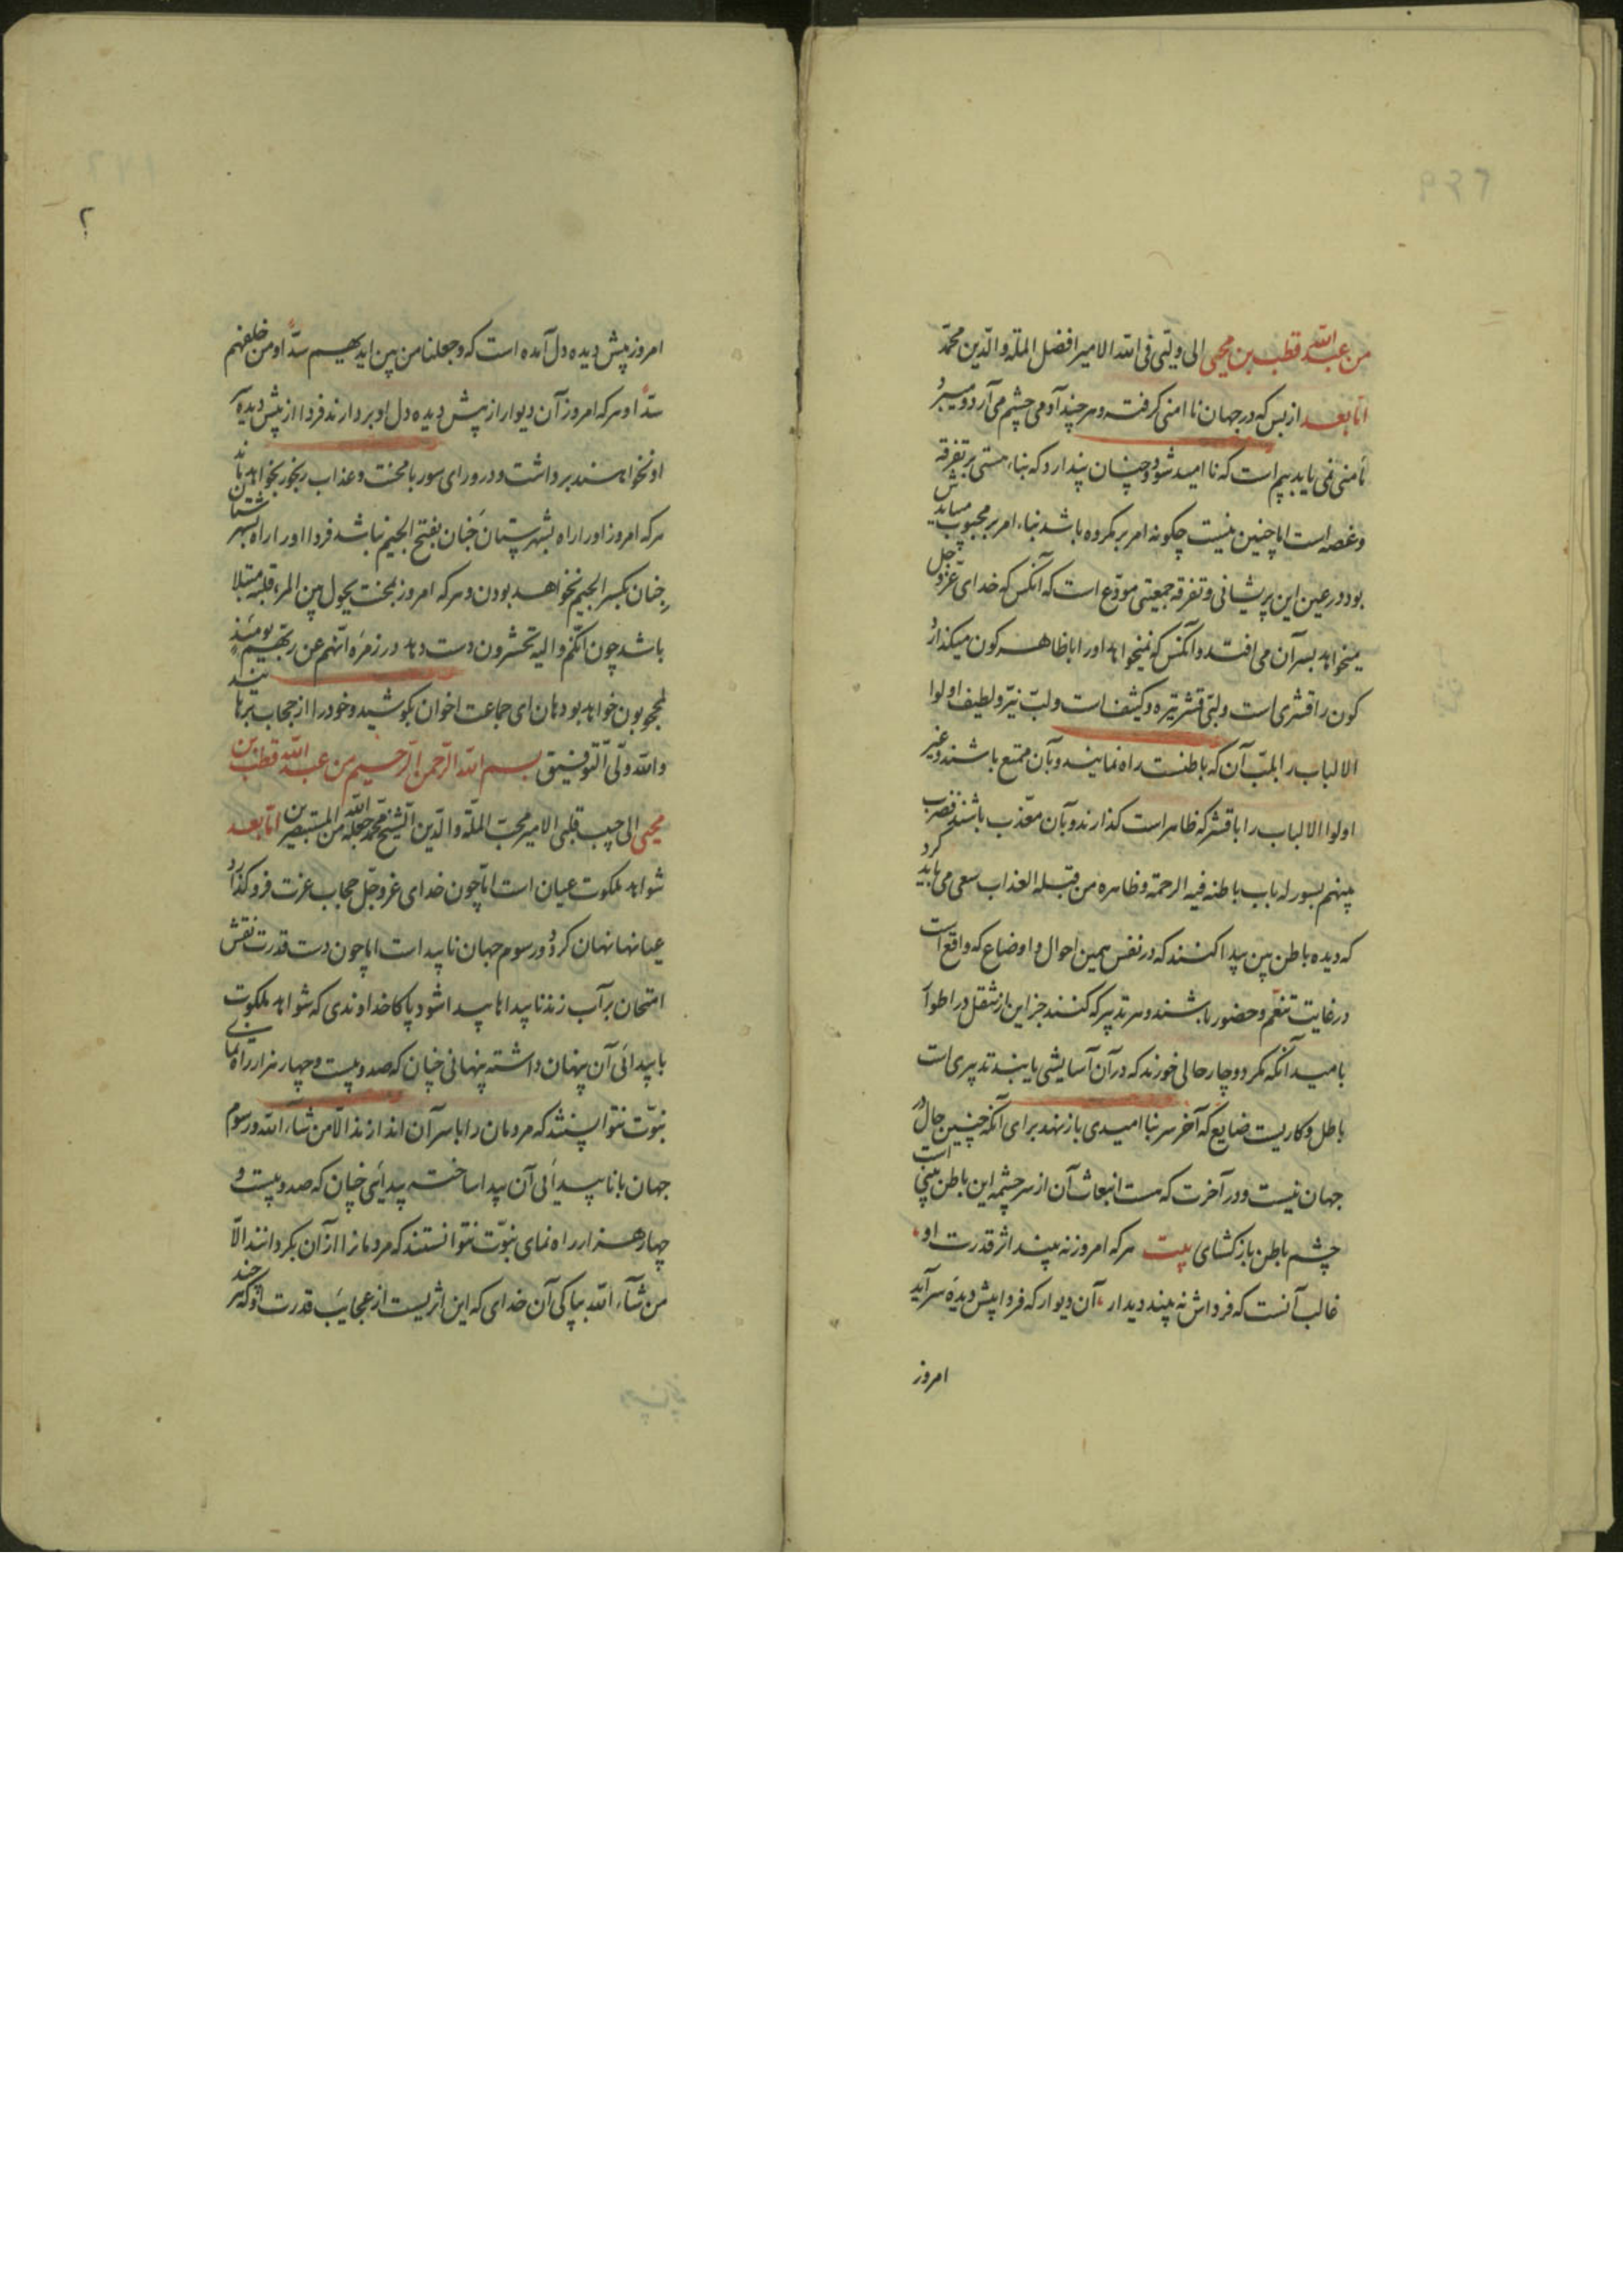 من عبد الله قطب بن محیی الی ولیّی فی الله الامیر افضل الملة والدّین محمّد
امّا بعد از بس که در جهان ناامنی گرفته و هر چند آدمی چشم می‌آرد و میبرد
مأمنی نمی‌یابد بیم است که ناامید شود و چنان پندارد که بناء هستی بر تفرقه
و غصه است اما چنین نیست چگونه امر بر مکروه باشد بناء امر بر محبوب میباید
بود در عین این پریشانی و تفرقه جمعیتی مودّع است که آنکس که خدای عزّ و جل
میخواهد بسر آن می‌افتد و آنکس که نمیخواهد او را با ظاهر کون میگذارد
کون را قشری است و لبّی قشر تیره و کثیف است و لبّ نیّر و لطیف اولوا
الالباب را بلبّ آن که باطنست راه نمایند و بآن متمتع باشند و غیر
اولوا الالباب را با قشر که ظاهر است گذارند و بآن معذّب باشند فضرب
بینهم بسور له باب باطنه فیه الرحمة و ظاهره من قبله العذاب سعی می‌باید کرد
که دیده باطن بین پیدا کنند که در نفس همین احوال و اوضاع که واقع است
در غایت تنعّم و حضور باشند و هر تدبیر که کنند جز این از تنقل در اطوار
بامید آنکه مگر دوچار حالی خورند که در آن آسایشی یابند تدبیری است
باطل و کاریست ضایع که آخر سر بناامیدی باز نهد برای آنکه چنین حال در
جهان نیست و در آخرت که هست انبعاث آن از سرچشمه این باطن بینی است
چشم باطن باز کشای بیت هر که امروز نه بیند اثر قدرت او
غالب آنست که فرداش نه بیند دیدار آن دیوار که فردا پیش دیده سر آید
امروز
امروز پیش دیده دل آمده است که وجعلنا من بین ایدیهم سدّا و من خلفهم
سدّا و هر که امروز آن دیوار از پیش دیده دل او بردارند فردا از پیش دیده
او نخواهند برداشت و در ورای سور با محنت و عذاب رنجور بخواهد ماند
هر که امروز او را راه بشهرستان جَنان بفتح الجیم نباشد فردا او را راه بشهرستان
جِنان بکسر الجیم نخواهد بودن و هر که امروز بمحنت یحول بین المرء و قلبه مبتلا
باشد چون انکم و الیه تحشرون دست دهد در زمره انّهم عن ربّهم یومئذ
لمحجوبون خواهد بود هان ای جماعت اخوان بکوشید و خود را از حجاب برهانید
والله ولیّ التّوفیق بسم الله الرّحمن الرّحیم من عبد الله قطب بن
محیی الی حبیب قلبی الامیر محبّ الملّة والدّین الشّیخ محمّد جعله الله من المستبصرین امّا بعد
شواهد ملکوت عیان است امّا چون خدای عزّ و جلّ حجاب عزت فرو گذارد
عیانها نهان گردد و رسوم جهان ناپیداست اما چون دست قدرت نقش
امتحان بر آب زند ناپیداها پیدا شود پاکا خداوندی که شواهد ملکوت
با پیدائی آن پنهان داشته پنهانی چنان که صد و بیست و چهار هزار راه نمای
نبوّت نتوانستند که مردمان را با سر آن اندازند الّا من شاء الله و رسوم
جهان با ناپیدائی آن پیدا ساخته پیدائی چنان که صد و بیست و
چهار هزار راه نمای نبوّت نتوانستند که مردمانرا از آن بگردانند الّا
من شاء الله بپاکی آن خدای که این اثریست از عجایب قدرت او که هر چند